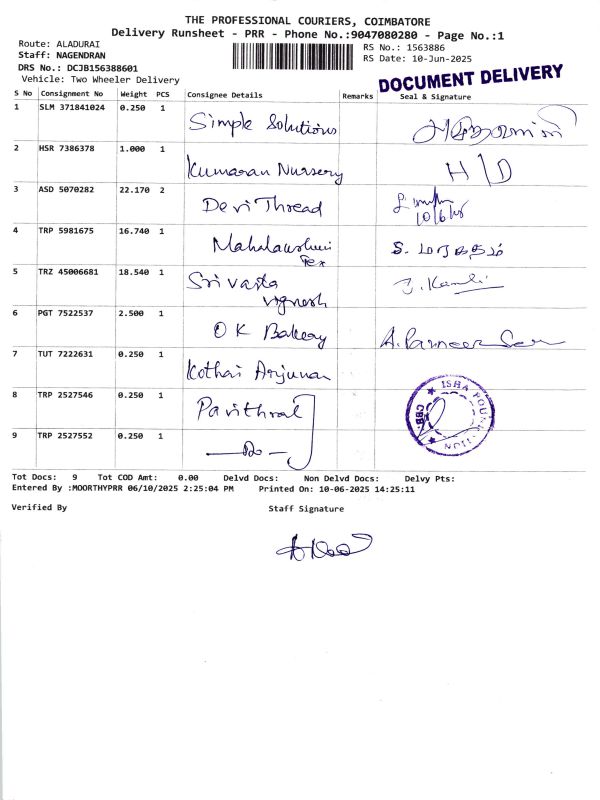 THE PROFESSIONAL COURIERS, COIMBATORE
Delivery Runsheet - PRR - Phone No.:9047080280 - Page No.:1
Route: ALADURAI
RS No.: 1563886
Staff: NAGENDRAN
RS Date: 10-Jun-2025
DRS No.: DCJB156388601
Vehicle: Two Wheeler Delivery
DOCUMENT DELIVERY
S No Consignment No Weight PCS Consignee Details Remarks Seal & Signature
1 SLM 371841024 0.250 1 Simple Solutions
2 HSR 7386378 1.000 1 Kumaran Nursery H/D
3 ASD 5070282 22.170 2 Devi Thread 10/6/25
4 TRP 5981675 16.740 1 Mahalakshmi Tex S. மாருதம்
5 TRZ 45006681 18.540 1 Sri Vasta Vignesh
6 PGT 7522537 2.500 1 OK Bakery
7 TUT 7222631 0.250 1 Kothai Arjunan
8 TRP 2527546 0.250 1 Pavithra ISHA FOUNDATION CBE.
9 TRP 2527552 0.250 1 —Do—
Tot Docs: 9 Tot COD Amt: 0.00 Delvd Docs: Non Delvd Docs: Delvy Pts:
Entered By :MOORTHYPRR 06/10/2025 2:25:04 PM Printed On: 10-06-2025 14:25:11
Verified By Staff Signature